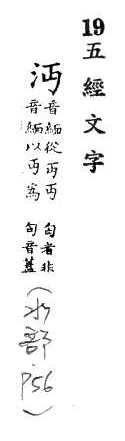 19五經文字
沔音緬從丏丏
音緬以丏爲
匄者非
匄音蓋
(水部
p56)